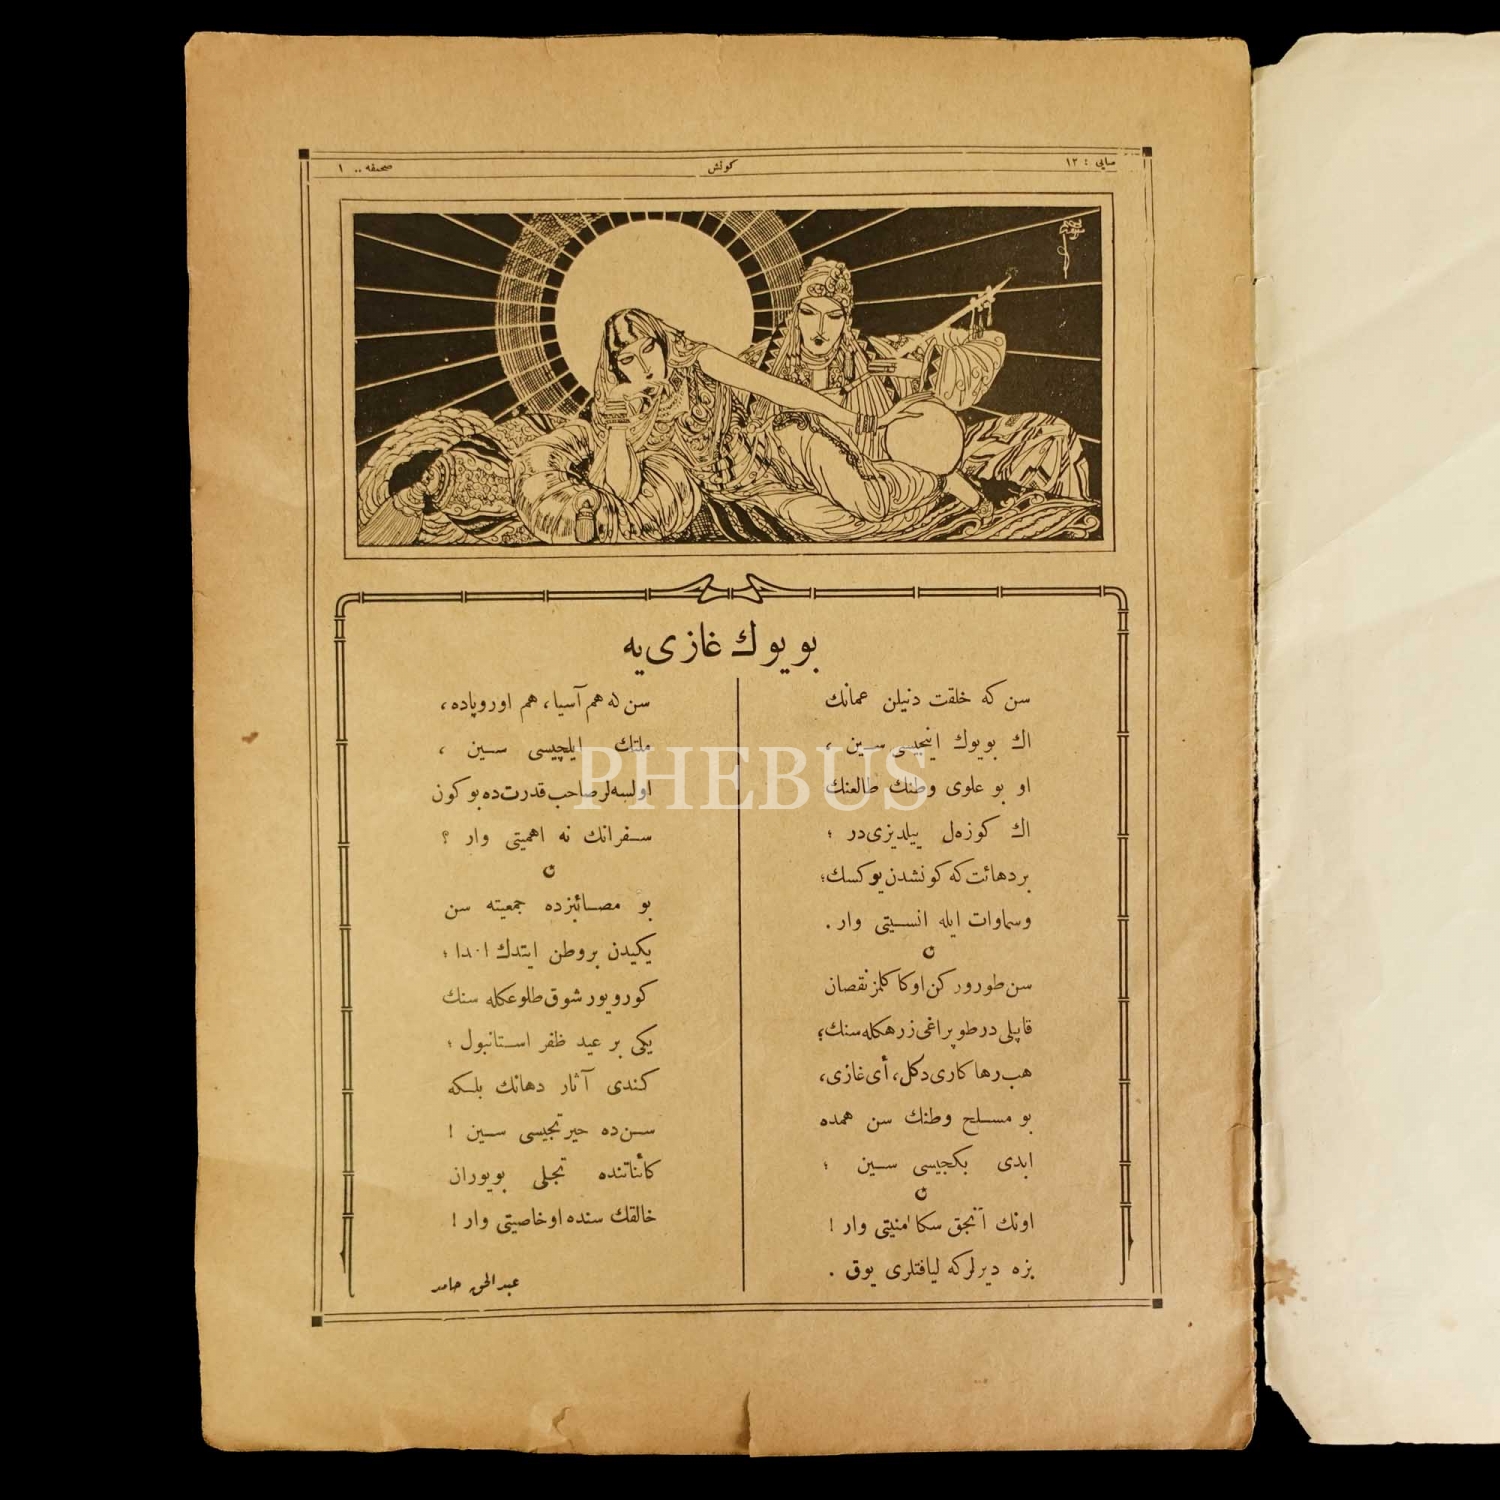 صایی : ١٢
كونش
صحیفه .. ١
بو یوك غازی یه
سن كه خلقت دنیلن عمانك
اك بو یوك اینجیسی سین ،
او بو علوی وطنك طالعنك
اك كوزه‌ل ییلدیزی در ؛
بر دهائت كه كونشدن یوكسك ؛
وسماوات ایله انسیتی وار .
سن طورور كن اوكا كلمز نقصان
قاپلی در طوپراغی زرهكله سنك ؛
هب رها كاری دكل، أی غازی،
بو مسلح وطنك سن همده
ابدی بكجیسی سین ؛
اونك آنجق سكا امنیتی وار !
بزه دیرلر كه لیاقتلری یوق .
سن كه هم آسیا، هم اوروپاده ،
ملتك ایلچیسی سین ،
اولسه‌لر صاحب قدرت ده بو كون
سفرانك نه اهمیتی وار ؟
بو مصائبزده جمعیته سن
یكیدن بر وطن ایتدك اهدا ؛
كورویور شوق طلوعكله سنك
یكی بر عید ظفر استانبول ؛
كندی آثار دهانك بلكه
سن ده حیرتجیسی سین !
كائناتنده تجلی بویوران
خالقك سنده او خاصیتی وار !
عبدالحق حامد
PHEBUS